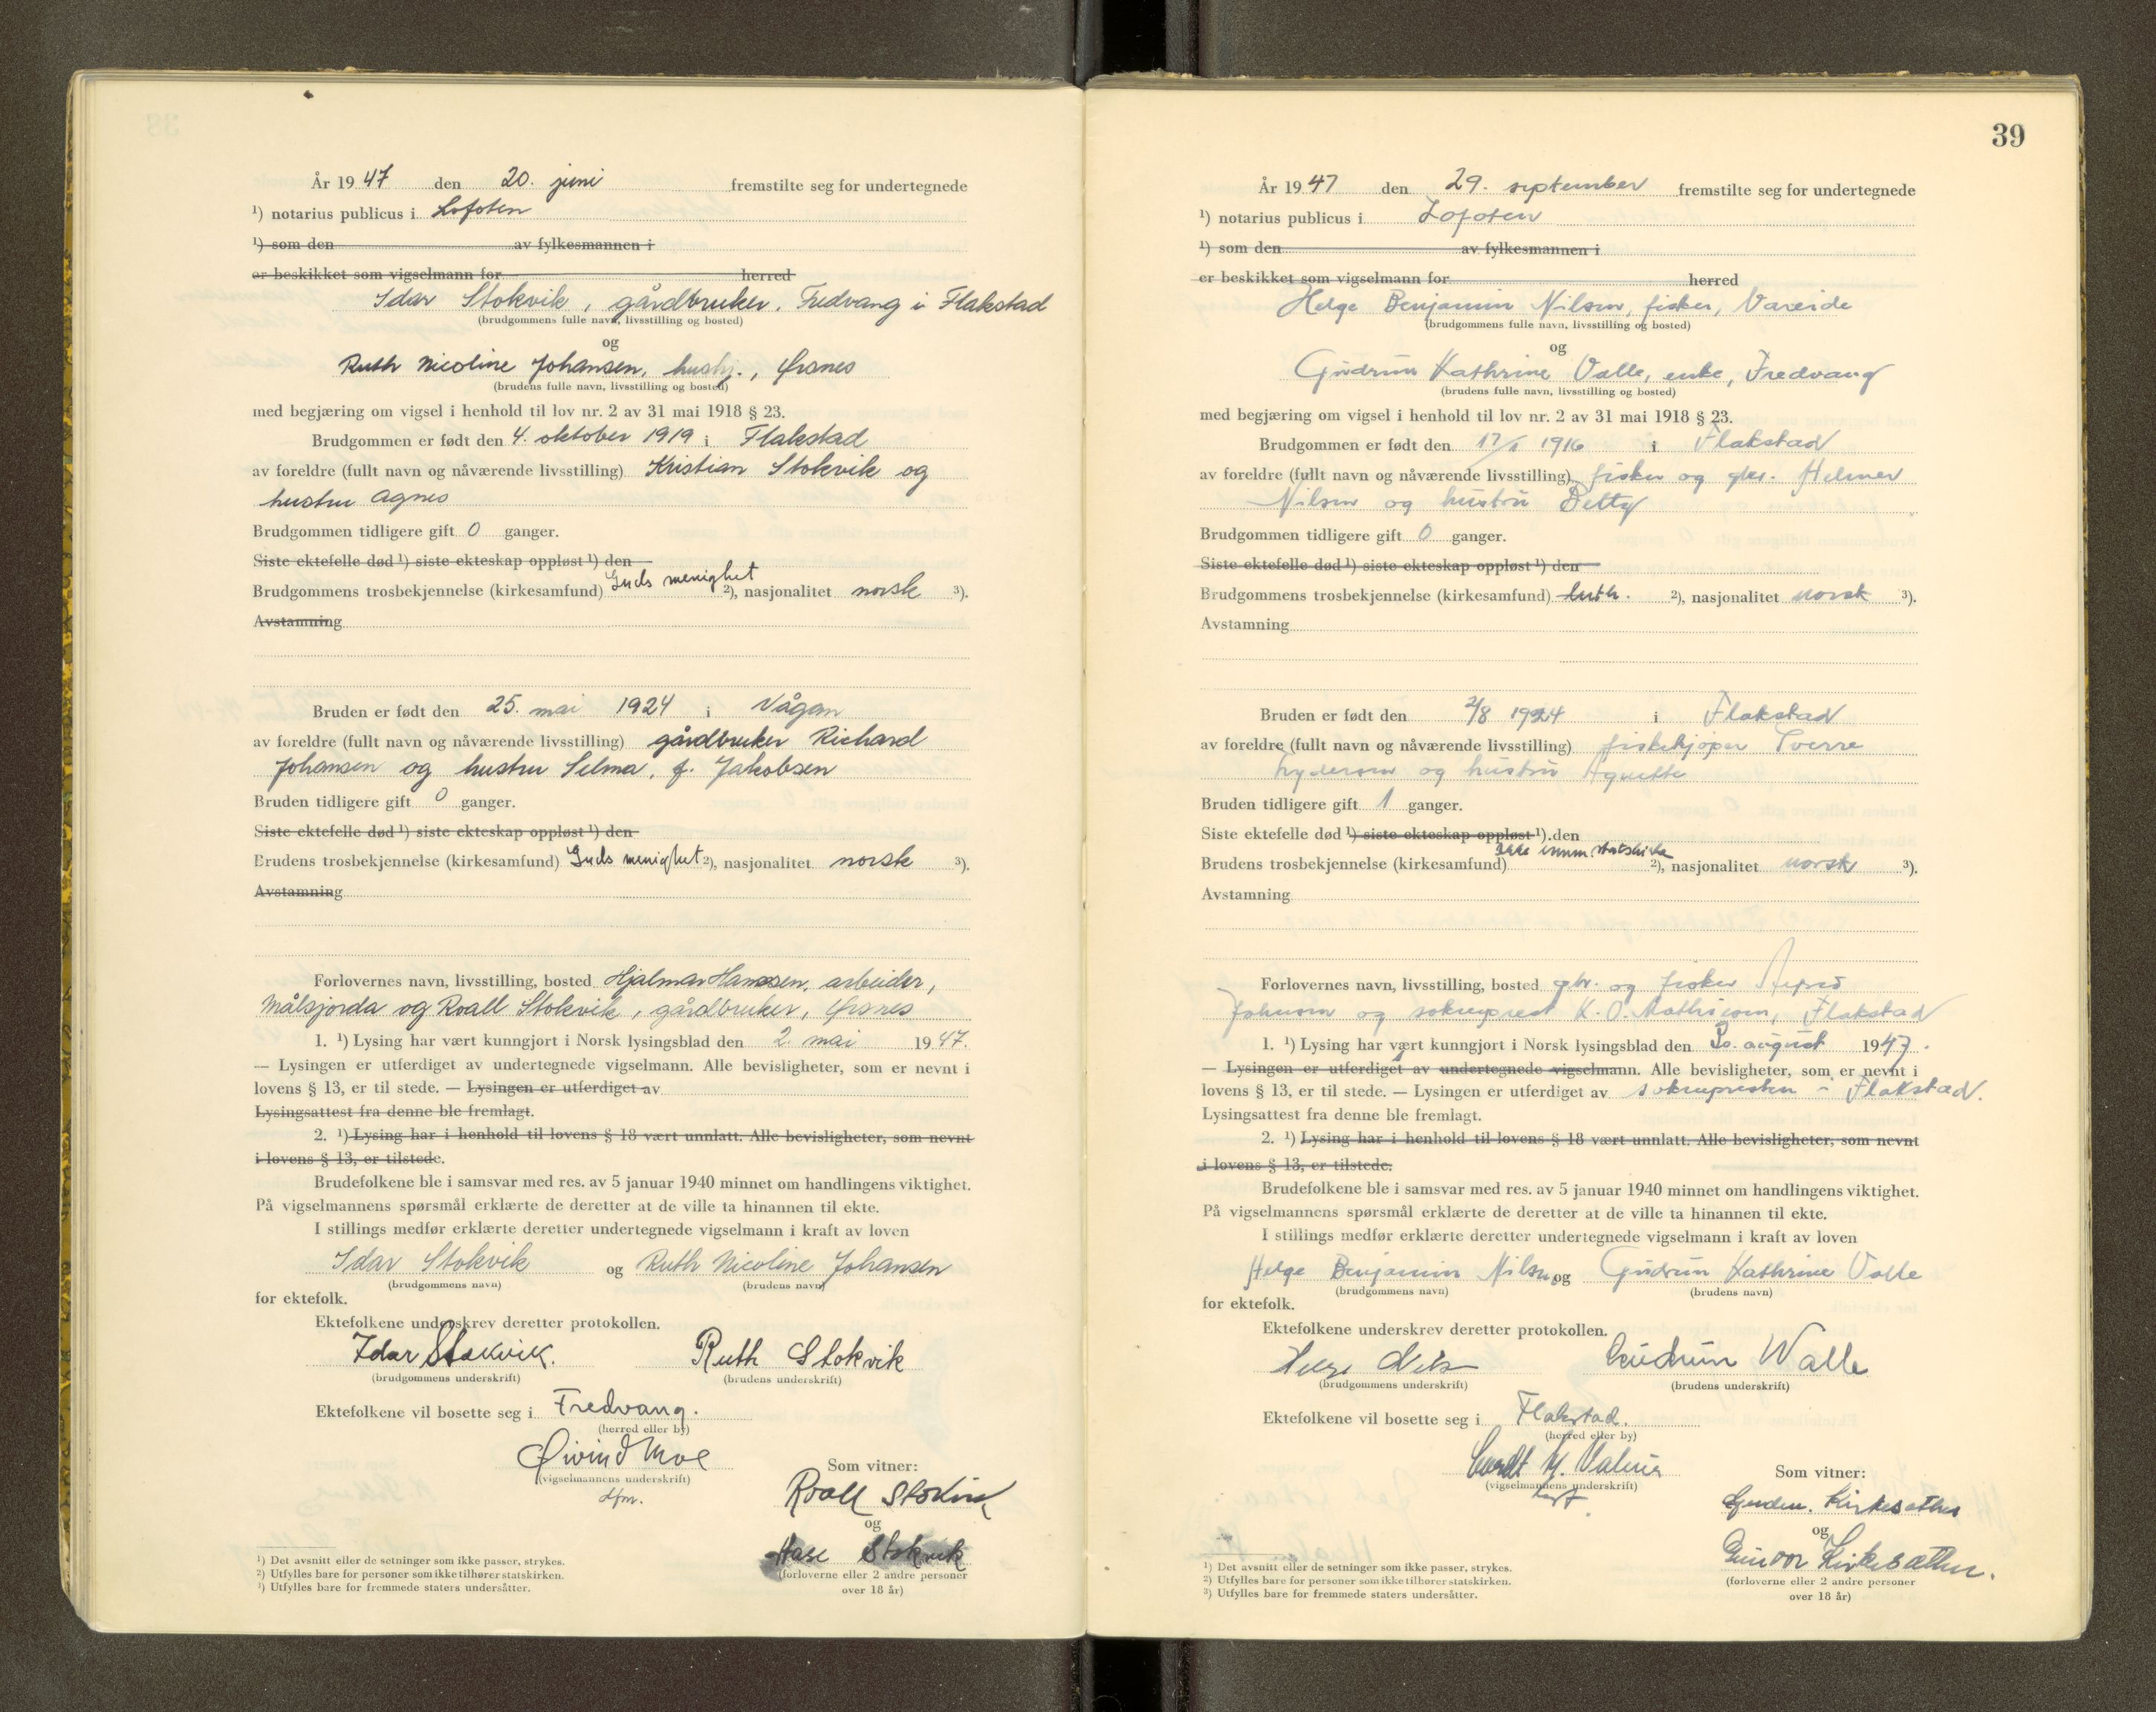 År 1947 den 20. juni fremstilte seg for undertegnede
¹) notarius publicus i Lofoten
¹) som den av fylkesmannen i
er beskikket som vigselmann for herred
Idar Stokvik, gårdbruker, Fredvang i Flakstad
(brudgommens fulle navn, livsstilling og bosted)
og
Ruth Nicoline Johansen, hushj., Ørsnes
(brudens fulle navn, livsstilling og bosted)
med begjæring om vigsel i henhold til lov nr. 2 av 31 mai 1918 § 23.
Brudgommen er født den 4. oktober 1919 i Flakstad
av foreldre (fullt navn og nåværende livsstilling) Kristian Stokvik og
hustru Agnes
Brudgommen tidligere gift 0 ganger.
Siste ektefelle død ¹) siste ekteskap oppløst ¹) den
Brudgommens trosbekjennelse (kirkesamfund) Guds menighet ²), nasjonalitet norsk ³).
Avstamning
Bruden er født den 25. mai 1924 i Vågan
av foreldre (fullt navn og nåværende livsstilling) gårdbruker Richard
Johansen og hustru Selma, f. Jakobsen
Bruden tidligere gift 0 ganger.
Siste ektefelle død ¹) siste ekteskap oppløst ¹) den
Brudens trosbekjennelse (kirkesamfund) Guds menighet ²), nasjonalitet norsk ³).
Avstamning
Forlovernes navn, livsstilling, bosted Hjalmar Hanssen, arbeider,
Målsjorda og Roall Stokvik, gårdbruker, Ørsnes
1. ¹) Lysing har vært kunngjort i Norsk lysingsblad den 2. mai 1947.
— Lysingen er utferdiget av undertegnede vigselmann. Alle bevisligheter, som er nevnt i
lovens § 13, er til stede. — Lysingen er utferdiget av
Lysingsattest fra denne ble fremlagt.
2. ¹) Lysing har i henhold til lovens § 18 vært unnlatt. Alle bevisligheter, som nevnt
i lovens § 13, er tilstede.
Brudefolkene ble i samsvar med res. av 5 januar 1940 minnet om handlingens viktighet.
På vigselmannens spørsmål erklærte de deretter at de ville ta hinannen til ekte.
I stillings medfør erklærte deretter undertegnede vigselmann i kraft av loven
Idar Stokvik og Ruth Nicoline Johansen
(brudgommens navn) (brudens navn)
for ektefolk.
Ektefolkene underskrev deretter protokollen.
Idar Stokvik. Ruth Stokvik
(brudgommens underskrift) (brudens underskrift)
Ektefolkene vil bosette seg i Fredvang.
(herred eller by)
Øivind Moe
(vigselmannens underskrift)
dfm.
Som vitner:
Roall Stokvik
og
Stokvik
(forloverne eller 2 andre personer
over 18 år)
¹) Det avsnitt eller de setninger som ikke passer, strykes.
²) Utfylles bare for personer som ikke tilhører statskirken.
³) Utfylles bare for fremmede staters undersåtter.
39
År 1947 den 29. september fremstilte seg for undertegnede
¹) notarius publicus i Lofoten
¹) som den av fylkesmannen i
er beskikket som vigselmann for herred
Helge Benjamin Nilsen, fisker, Vareide
(brudgommens fulle navn, livsstilling og bosted)
og
Gudrun Kathrine Valle, enke, Fredvang
(brudens fulle navn, livsstilling og bosted)
med begjæring om vigsel i henhold til lov nr. 2 av 31 mai 1918 § 23.
Brudgommen er født den 17/1 1916 i Flakstad
av foreldre (fullt navn og nåværende livsstilling) fisker og gbr. Helmer
Nilsen og hustru Betty
Brudgommen tidligere gift 0 ganger.
Siste ektefelle død ¹) siste ekteskap oppløst ¹) den
Brudgommens trosbekjennelse (kirkesamfund) luth. ²), nasjonalitet norsk ³).
Avstamning
Bruden er født den 2/8 1924 i Flakstad
av foreldre (fullt navn og nåværende livsstilling) fiskekjøper Sverre
og hustru Agnethe
Bruden tidligere gift 1 ganger.
Siste ektefelle død ¹) siste ekteskap oppløst ¹). den
Brudens trosbekjennelse (kirkesamfund) ikke innm. statskirke ²), nasjonalitet norsk ³).
Avstamning
Forlovernes navn, livsstilling, bosted gbr. og fisker Alfred
Johnsen og sokneprest K. O. Mathisen, Flakstad
1. ¹) Lysing har vært kunngjort i Norsk lysingsblad den 20. august 1947.
— Lysingen er utferdiget av undertegnede vigselmann. Alle bevisligheter, som er nevnt i
lovens § 13, er til stede. — Lysingen er utferdiget av soknepresten i Flakstad.
Lysingsattest fra denne ble fremlagt.
2. ¹) Lysing har i henhold til lovens § 18 vært unnlatt. Alle bevisligheter, som nevnt
i lovens § 13, er tilstede.
Brudefolkene ble i samsvar med res. av 5 januar 1940 minnet om handlingens viktighet.
På vigselmannens spørsmål erklærte de deretter at de ville ta hinannen til ekte.
I stillings medfør erklærte deretter undertegnede vigselmann i kraft av loven
Helge Benjamin Nilsen og Gudrun Kathrine Valle
(brudgommens navn) (brudens navn)
for ektefolk.
Ektefolkene underskrev deretter protokollen.
Helge Nils Gudrun Walle
(brudgommens underskrift) (brudens underskrift)
Ektefolkene vil bosette seg i Flakstad.
(herred eller by)
(vigselmannens underskrift)
Som vitner:
Kirkesæther
og
Gunvor Kirkesæther.
(forloverne eller 2 andre personer
over 18 år)
¹) Det avsnitt eller de setninger som ikke passer, strykes.
²) Utfylles bare for personer som ikke tilhører statskirken.
³) Utfylles bare for fremmede staters undersåtter.